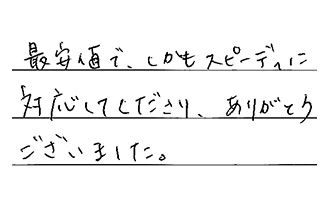 最安値で、しかもスピーディに
対応してくださり、ありがとう
ございました。